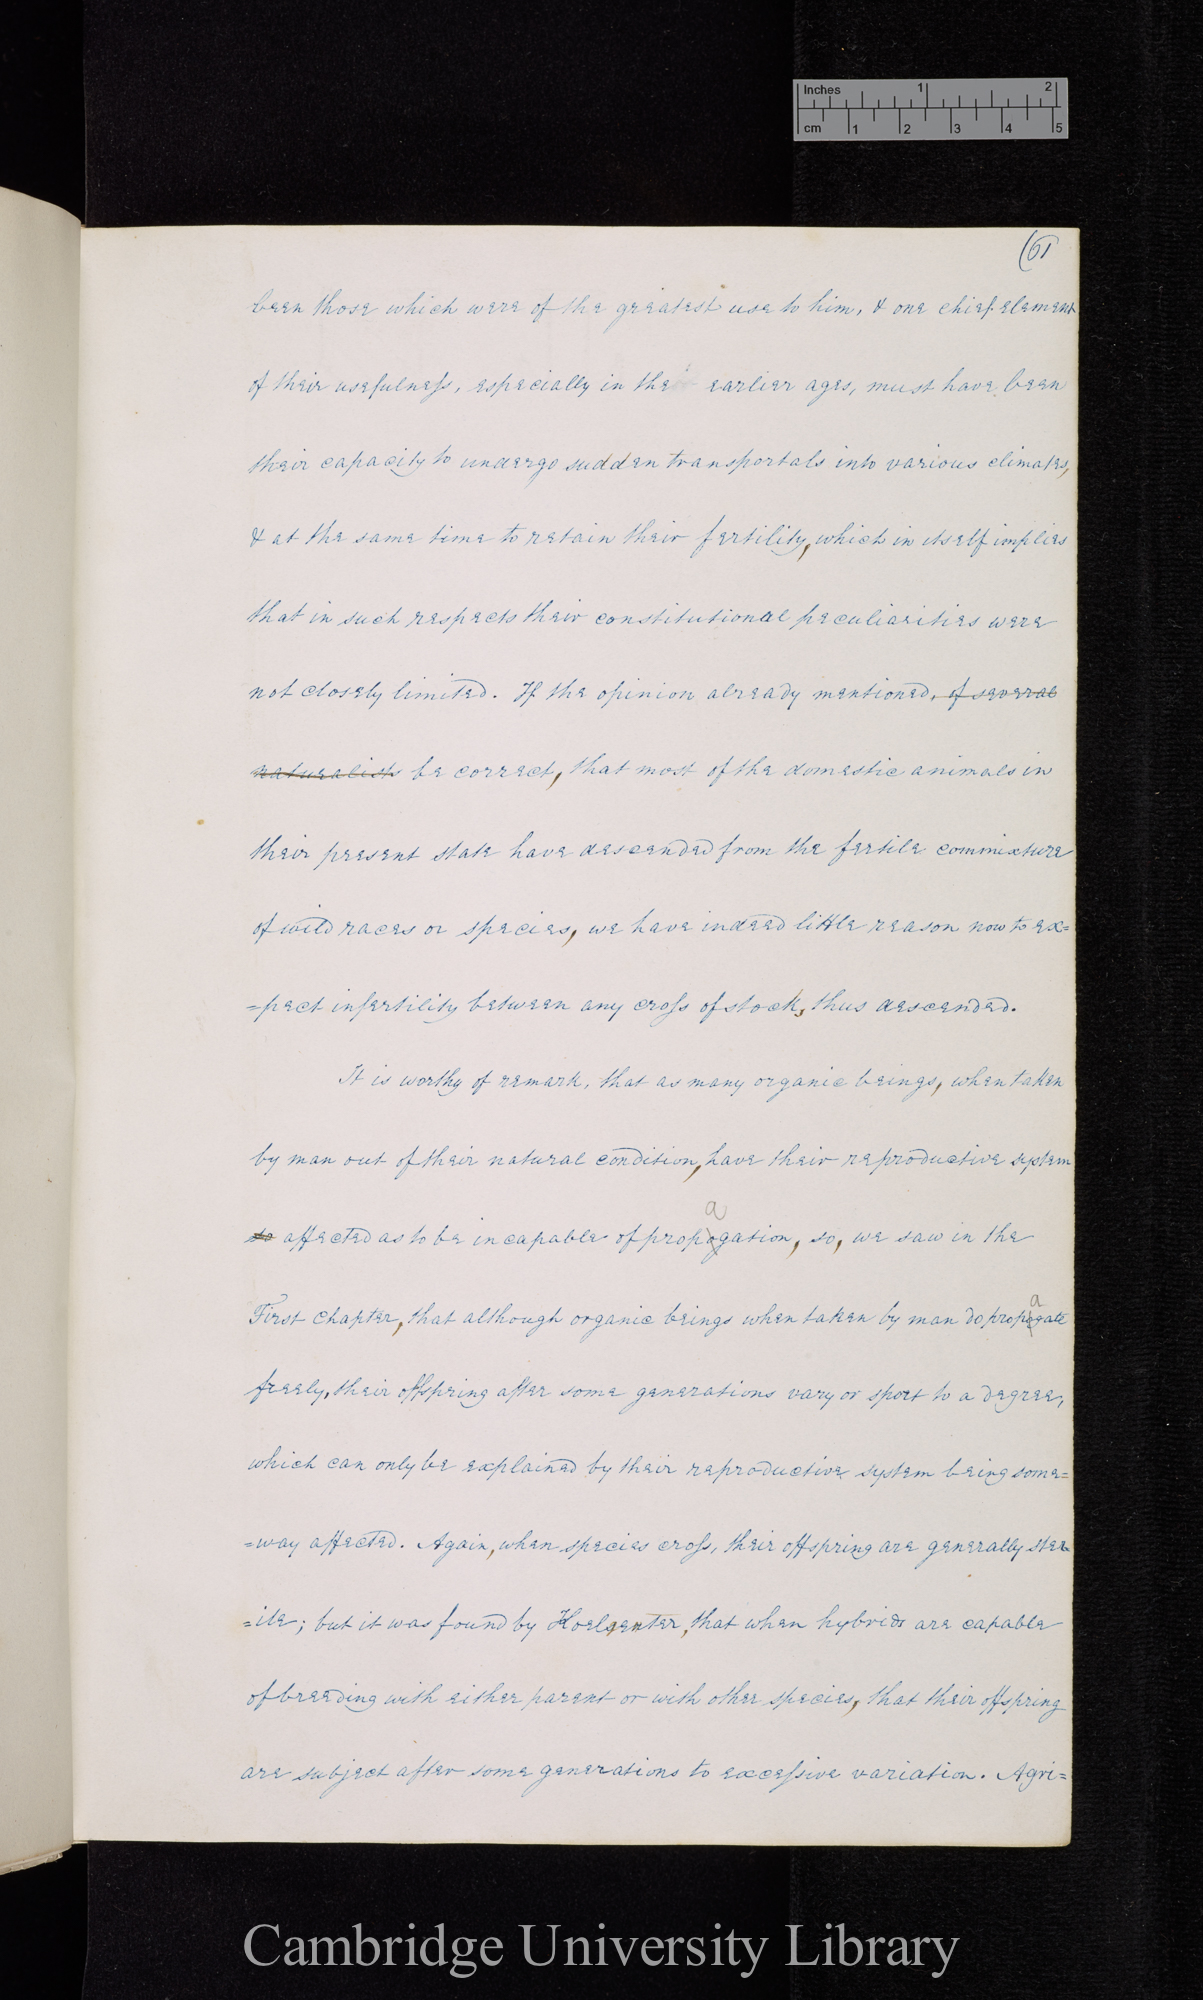 Inches 1 2
cm 1 2 3 4 5
(61
been those which were of the greatest use to him, & one chief element
of their usefulness, especially in the earlier ages, must have been
their capacity to undergo sudden transportals into various climates,
& at the same time to retain their fertility, which in itself implies
that in such respects their constitutional peculiarities were
not closely limited. If the opinion already mentioned, of several
naturalists be correct, that most of the domestic animals in
their present state have descended from the fertile commixture
of wild races or species, we have indeed little reason now to ex=
=pect infertility between any cross of stock, thus descended.
It is worthy of remark, that as many organic beings, when taken
by man out of their natural condition, have their reproductive system
a
so affected as to be incapable of propogation, so, we saw in the
a
First Chapter, that although organic beings when taken by man do propogate
freely, their offspring after some generations vary or sport to a degree,
which can only be explained by their reproductive system being some=
=way affected. Again, when species cross, their offspring are generally ster
=ile; but it was found by Koelreuter, that when hybrids are capable
of breeding with either parent or with other species, that their offspring
are subject after some generations to excessive variation. Agri=
Cambridge University Library